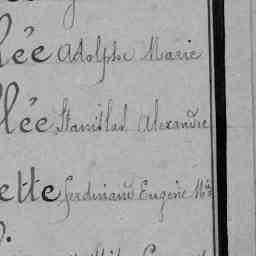 ée Adolphe Marie
lée Stanislas Alexandre
ette Ferdinand Eugène Mie